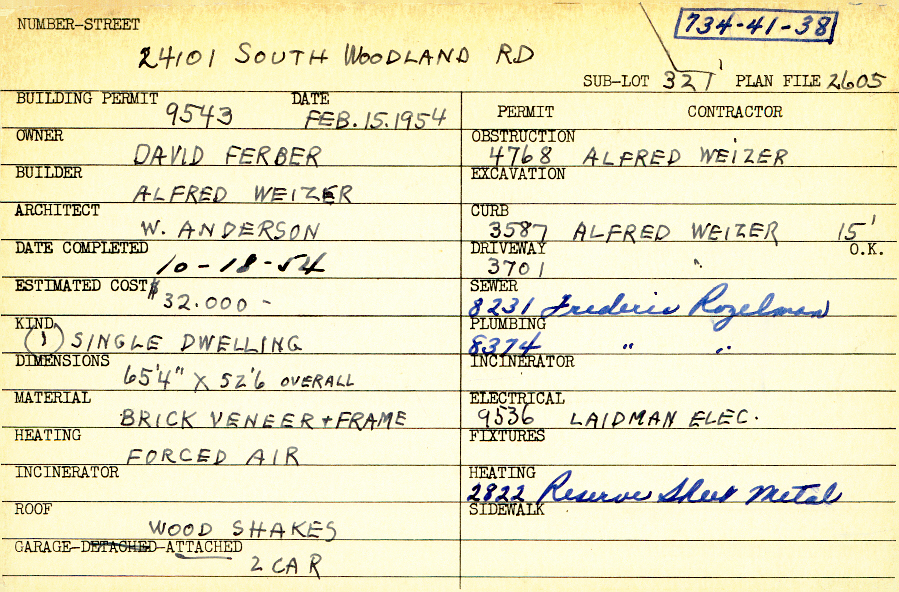 NUMBER-STREET
734-41-38
24101 SOUTH WOODLAND RD
SUB-LOT 321 PLAN FILE 2605
BUILDING PERMIT 9543 DATE FEB. 15. 1954
PERMIT CONTRACTOR
OWNER DAVID FERBER
OBSTRUCTION 4768 ALFRED WEIZER
BUILDER ALFRED WEIZER
EXCAVATION
ARCHITECT W. ANDERSON
CURB 3587 ALFRED WEIZER 15'
DATE COMPLETED 10-18-54
DRIVEWAY 3701 " O.K.
ESTIMATED COST $32.000 -
SEWER 8231 Frederic Rozelman
KIND (1) SINGLE DWELLING
PLUMBING 8374 " "
DIMENSIONS 65'4" X 52'6 OVERALL
INCINERATOR
MATERIAL BRICK VENEER + FRAME
ELECTRICAL 9536 LAIDMAN ELEC.
HEATING FORCED AIR
FIXTURES
INCINERATOR
HEATING 2822 Reserve Sheet Metal
ROOF WOOD SHAKES
SIDEWALK
GARAGE-DETACHED-ATTACHED 2 CAR